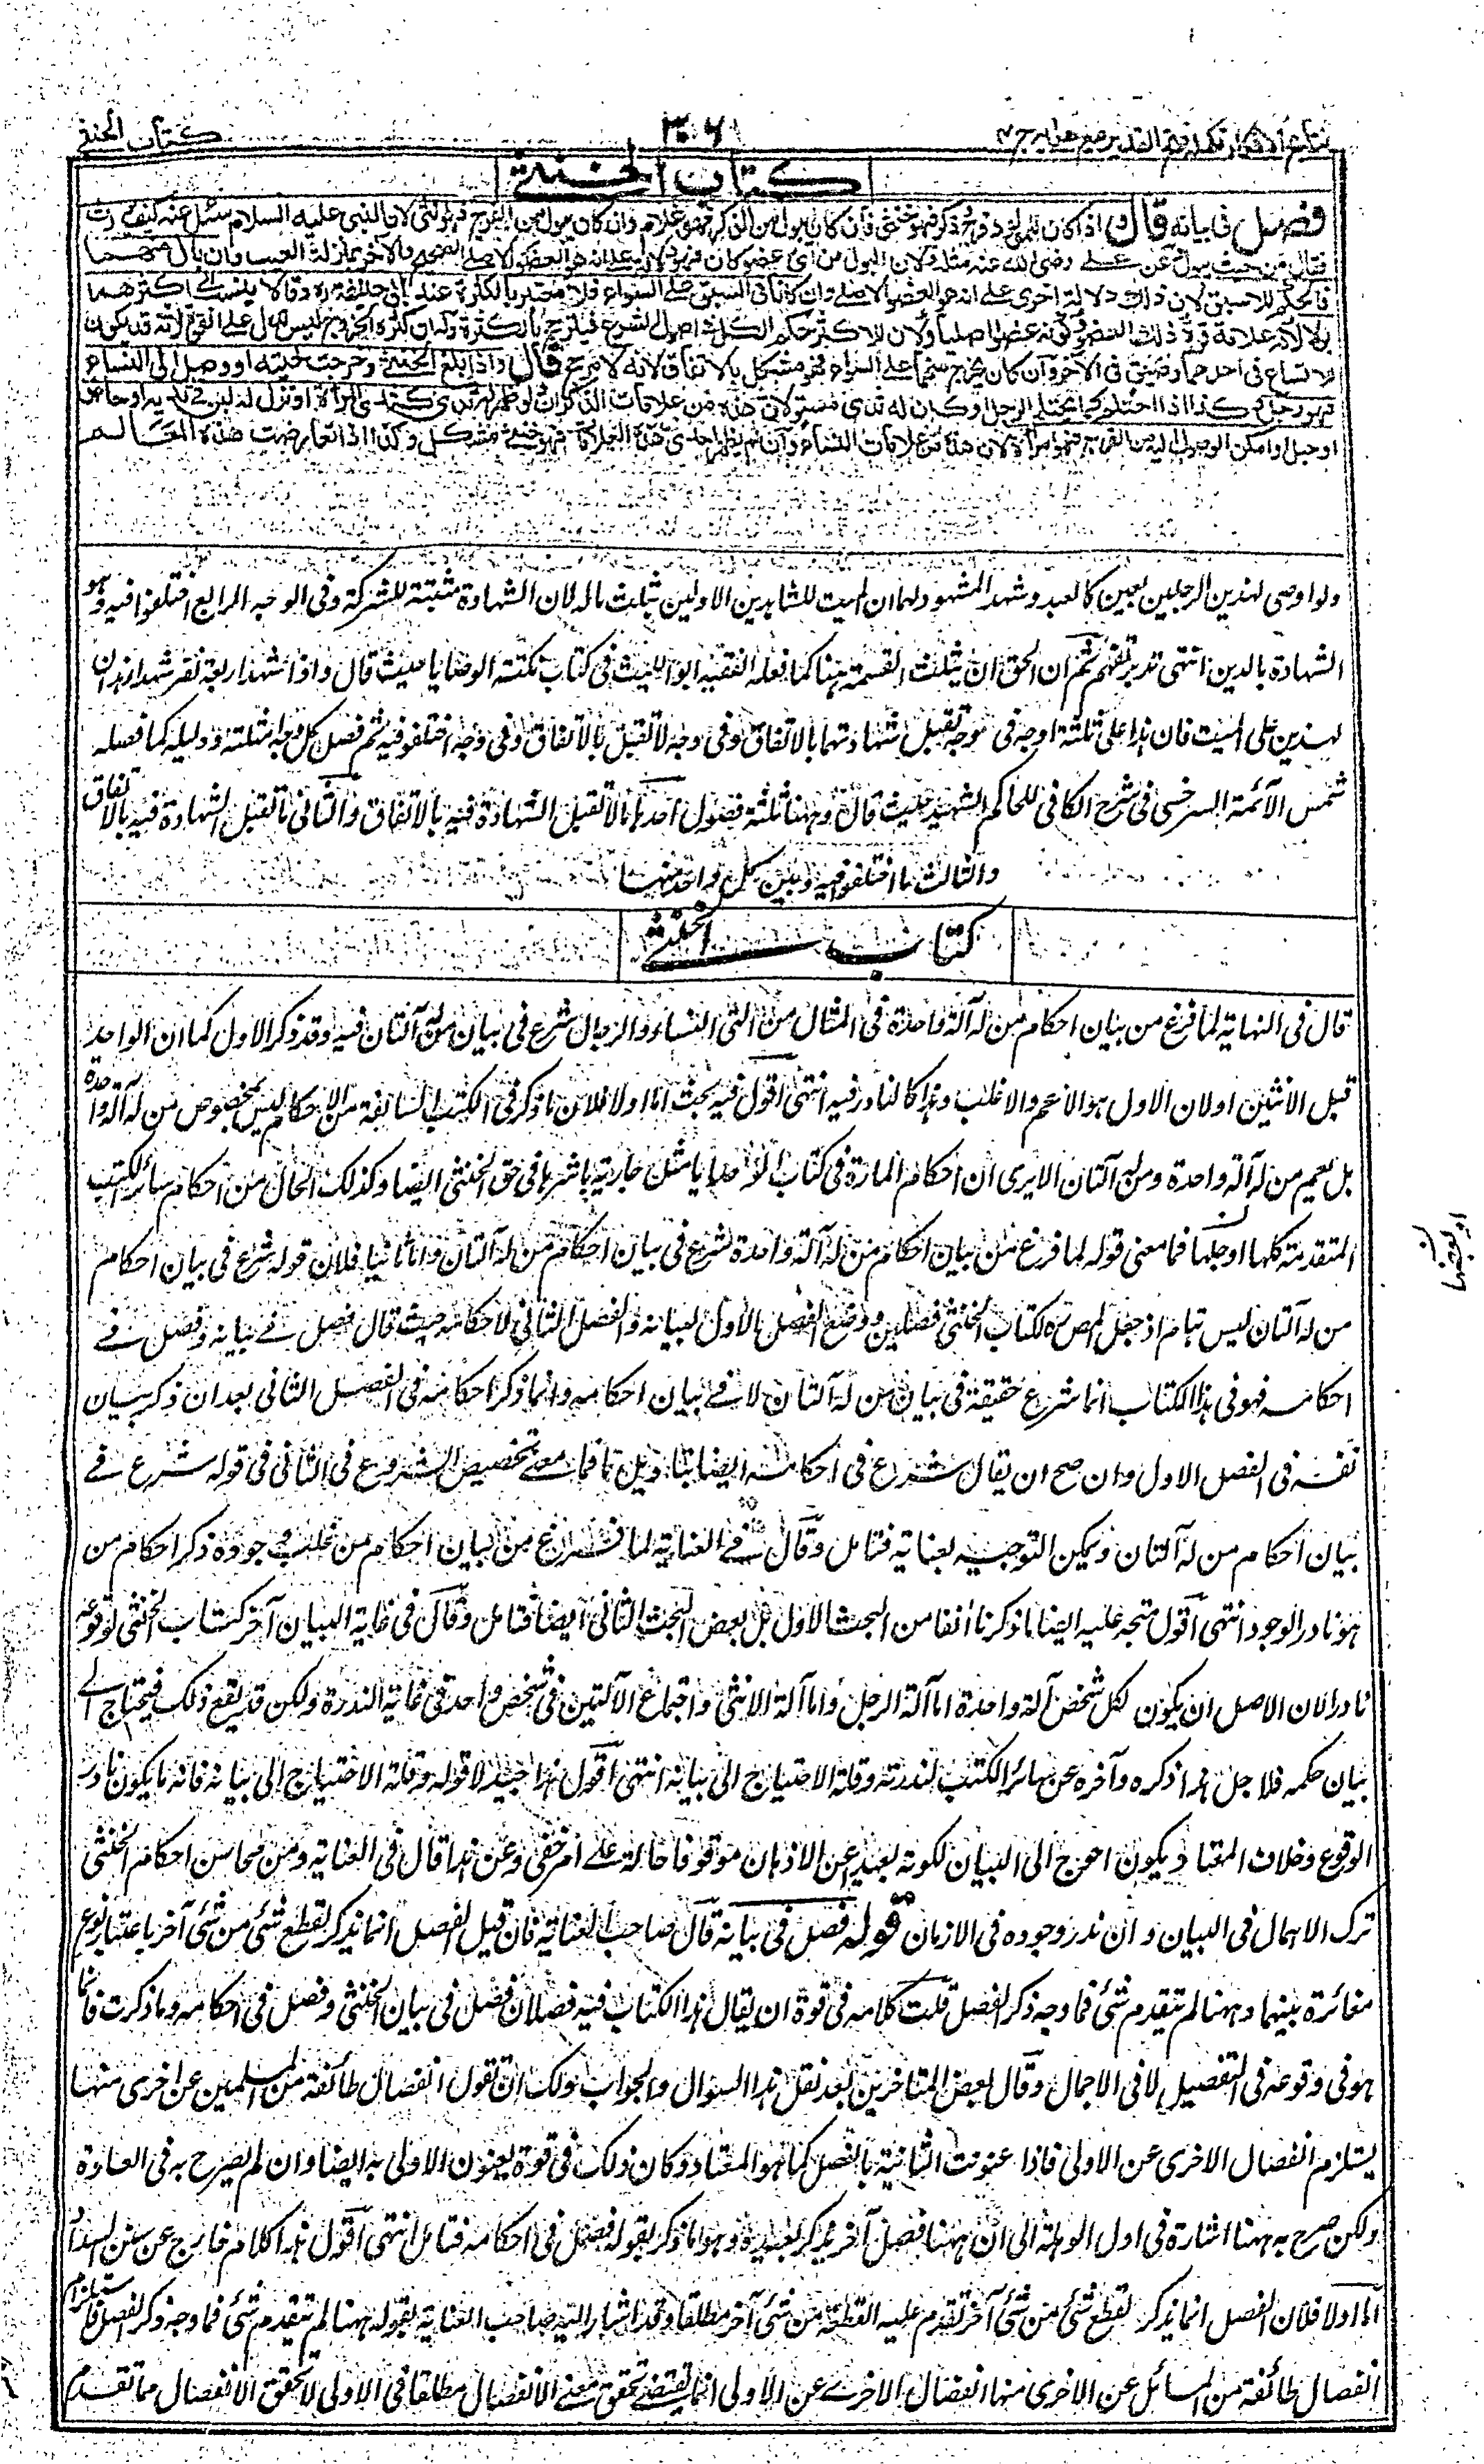 نتائج الافكار تكملة فتح القدير مع هدايه ج ٤
٣٠٦
كتاب الخنثى
كتاب الخنثى
فصل فى بيانه قال واذا كان للمولود فرج وذكر فهو خنثى فان كان يبول من الذكر فهو غلام وان كان يبول من الفرج فهو انثى لان النبى عليه السلام سئل عنه كيف يورث
فقال من حيث يبول وعن على رضى الله عنه مثله ولان البول من اى عضو كان فهو دلالة على انه هو العضو الاصلى الصحيح والآخر بمنزلة العيب وان بال منهما
فالحكم للاسبق لان ذلك دلالة اخرى على انه هو العضو الاصلى وان كانا فى السبق على السواء فلا معتبر بالكثرة عند ابى حنيفة ره وقالا ينسب الى اكثرهما
بولا لانه علامة قوة ذلك العضو وكونه عضوا اصليا ولان للاكثر حكم الكل فى اصول الشرع فيترجح بالكثرة وله ان كثرة الخروج ليس يدل على القوة لانه قد يكون
لاتساع فى احدهما وضيق فى الآخر وان كان يخرج منهما على السواء فهو مشكل بالاتفاق لانه لا مرجح قال واذا بلغ الخنثى وخرجت لحيته او وصل الى النساء
فهو رجل وكذا اذا احتلم كما يحتلم الرجل او كان له ثدى مستو لان هذه من علامات الذكران ولو ظهر له ثدى كثدى المرأة او نزل له لبن فى ثدييه او حاض
او حبل او امكن الوصول اليه من الفرج فهو امرأة لان هذه من علامات النساء وان لم يظهر احدى هذه العلامات فهو خنثى مشكل وكذا اذا تعارضت هذه المعالم
ولو اوصى لهذين الرجلين بعين كالعبد وشهد المشهود لهما ان الميت للشاهدين الاولين بثلث ماله لان الشهادة مثبتة للشركة وفى الوجه الرابع اختلفوا فيه وهو
الشهادة بالدين انتهى تدبر تفهم ثم ان الحق ان يثلث القسمة ههنا كما فعله الفقيه ابو الليث فى كتاب نكتة الوصايا حيث قال واذا شهد اربعة نفر شهد هذان
لهذين على الميت فان هذا على ثلثة اوجه فى وجه تقبل شهادتهما بالاتفاق وفى وجه لا تقبل بالاتفاق وفى وجه اختلفوا فيه ثم فصل كل وجه بامثلته ودليله كما فصله
شمس الائمة السرخسى فى شرح الكافى للحاكم الشهيد حيث قال وههنا ثلثة فصول احدها ما لا تقبل الشهادة فيه بالاتفاق والثانى ما تقبل الشهادة فيه بالاتفاق
والثالث ما اختلفوا فيه وبين كل واحد منها
كتاب الخنثى
قال فى النهاية لما فرغ من بيان احكام من له آلة واحدة فى المثال من النساء والرجال شرع فى بيان من له آلتان فيه وقد ذكر الاول كما ان الواحد
قبل الاثنين او لان الاول هو الاعم والاغلب وهذا كالنادر فيه انتهى اقول فيه بحث اما اولا فلان ما ذكر فى الكتب السالفة من الاحكام ليس بمخصوص من له آلة واحدة
بل يعم من له آلة واحدة ومن له آلتان الا يرى ان احكام المارة فى كتاب الوصايا مثلا جارية باسرها فى حق الخنثى ايضا وكذلك الحال من احكام سائر الكتب
المتقدمة كلها او جلها فما معنى قوله لما فرغ من بيان احكام من له آلة واحدة شرع فى بيان احكام من له آلتان واما ثانيا فلان قوله شرع فى بيان احكام
من له آلتان ليس بتام اذ جعل المص ره لكتاب الخنثى فصلين ووضع الفصل الاول لبيانه والفصل الثانى لاحكامه حيث قال فصل فى بيانه وفصل فى
احكامه فهو فى هذا الكتاب انما شرع حقيقة فى بيان من له آلتان لا فى بيان احكامه وانما ذكر احكامه فى الفصل الثانى بعد ان ذكر بيان
نفسه فى الفصل الاول وان صح ان يقال شرع فى احكامه ايضا بتاويل ما فما معنى تخصيص الشروع فى الثانى فى قوله شرع فى
بيان احكام من له آلتان ويمكن التوجيه بعناية فتامل وقال فى العناية لما فرغ من بيان احكام من غلب وجوده ذكر احكام من
هو نادر الوجود انتهى اقول يتجه عليه ايضا ما ذكرنا آنفا من البحث الاول بل بعض البحث الثانى ايضا فتامل وقال فى غاية البيان آخر كتاب الخنثى لوقوعه
نادرا لان الاصل ان يكون لكل شخص آلة واحدة اما آلة الرجل واما آلة الانثى واجتماع الآلتين فى شخص واحد فى غاية الندرة ولكن قد يقع ذلك فيحتاج الى
بيان حكمه فلاجل هذا ذكره وآخره عن سائر الكتب لندرته وقلة الاحتياج الى بيانه انتهى اقول هذا جيد الا قوله وقلة الاحتياج الى بيانه فانه ما يكون نادر
الوقوع وخلاف المعتاد يكون احوج الى البيان لكونه بعيدا عن الاذهان موقوفا حاله على امر خفى وعن هذا قال فى العناية ومن محاسن احكام الخنثى
ترك الاهمال فى البيان وان ندر وجوده فى الازمان قوله فصل فى بيانه قال صاحب العناية فان قيل الفصل انما يذكر لقطع شئ من شئ آخر باعتبار نوع
مغائرة بينهما وههنا لم يتقدم شئ فما وجه ذكر الفصل قلت كلامه فى قوة ان يقال هذا الكتاب فيه فصلان فصل فى بيان الخنثى وفصل فى احكامه وما ذكرت فانما
هو فى وقوعه فى التفصيل لا فى الاجمال وقال بعض المتاخرين بعد نقل هذا السوال والجواب ولك ان تقول انفصال طائفة من المسلمين عن اخرى منها
يستلزم انفصال الاخرى عن الاولى فاذا عنونت الثانية بالفصل كما هو المعتاد وكان ذلك فى قوة يعنون الاولى به ايضا وان لم يصرح به فى العادة
ولكن صرح به ههنا اشارة فى اول الوهلة الى ان ههنا فصل آخر يذكر بعيده وهو ما ذكر بقوله فصل فى احكامه فتامل انتهى اقول هذا كلام خارج عن سنن السداد
اما اولا فلان الفصل انما يذكر لقطع شئ من شئ آخر تقدم عليه لا لقطعه من شئ آخر مطلقا وقد اشار اليه صاحب العناية بقوله ههنا لم يتقدم شئ فما وجه ذكر الفصل فاستلزام
انفصال طائفة من المسائل عن الاخرى منها انفصال الاخرى عن الاولى انما يقتضى تحقق معنى الانفصال مطلقا فى الاولى لا تحقق الانفصال مما تقدم